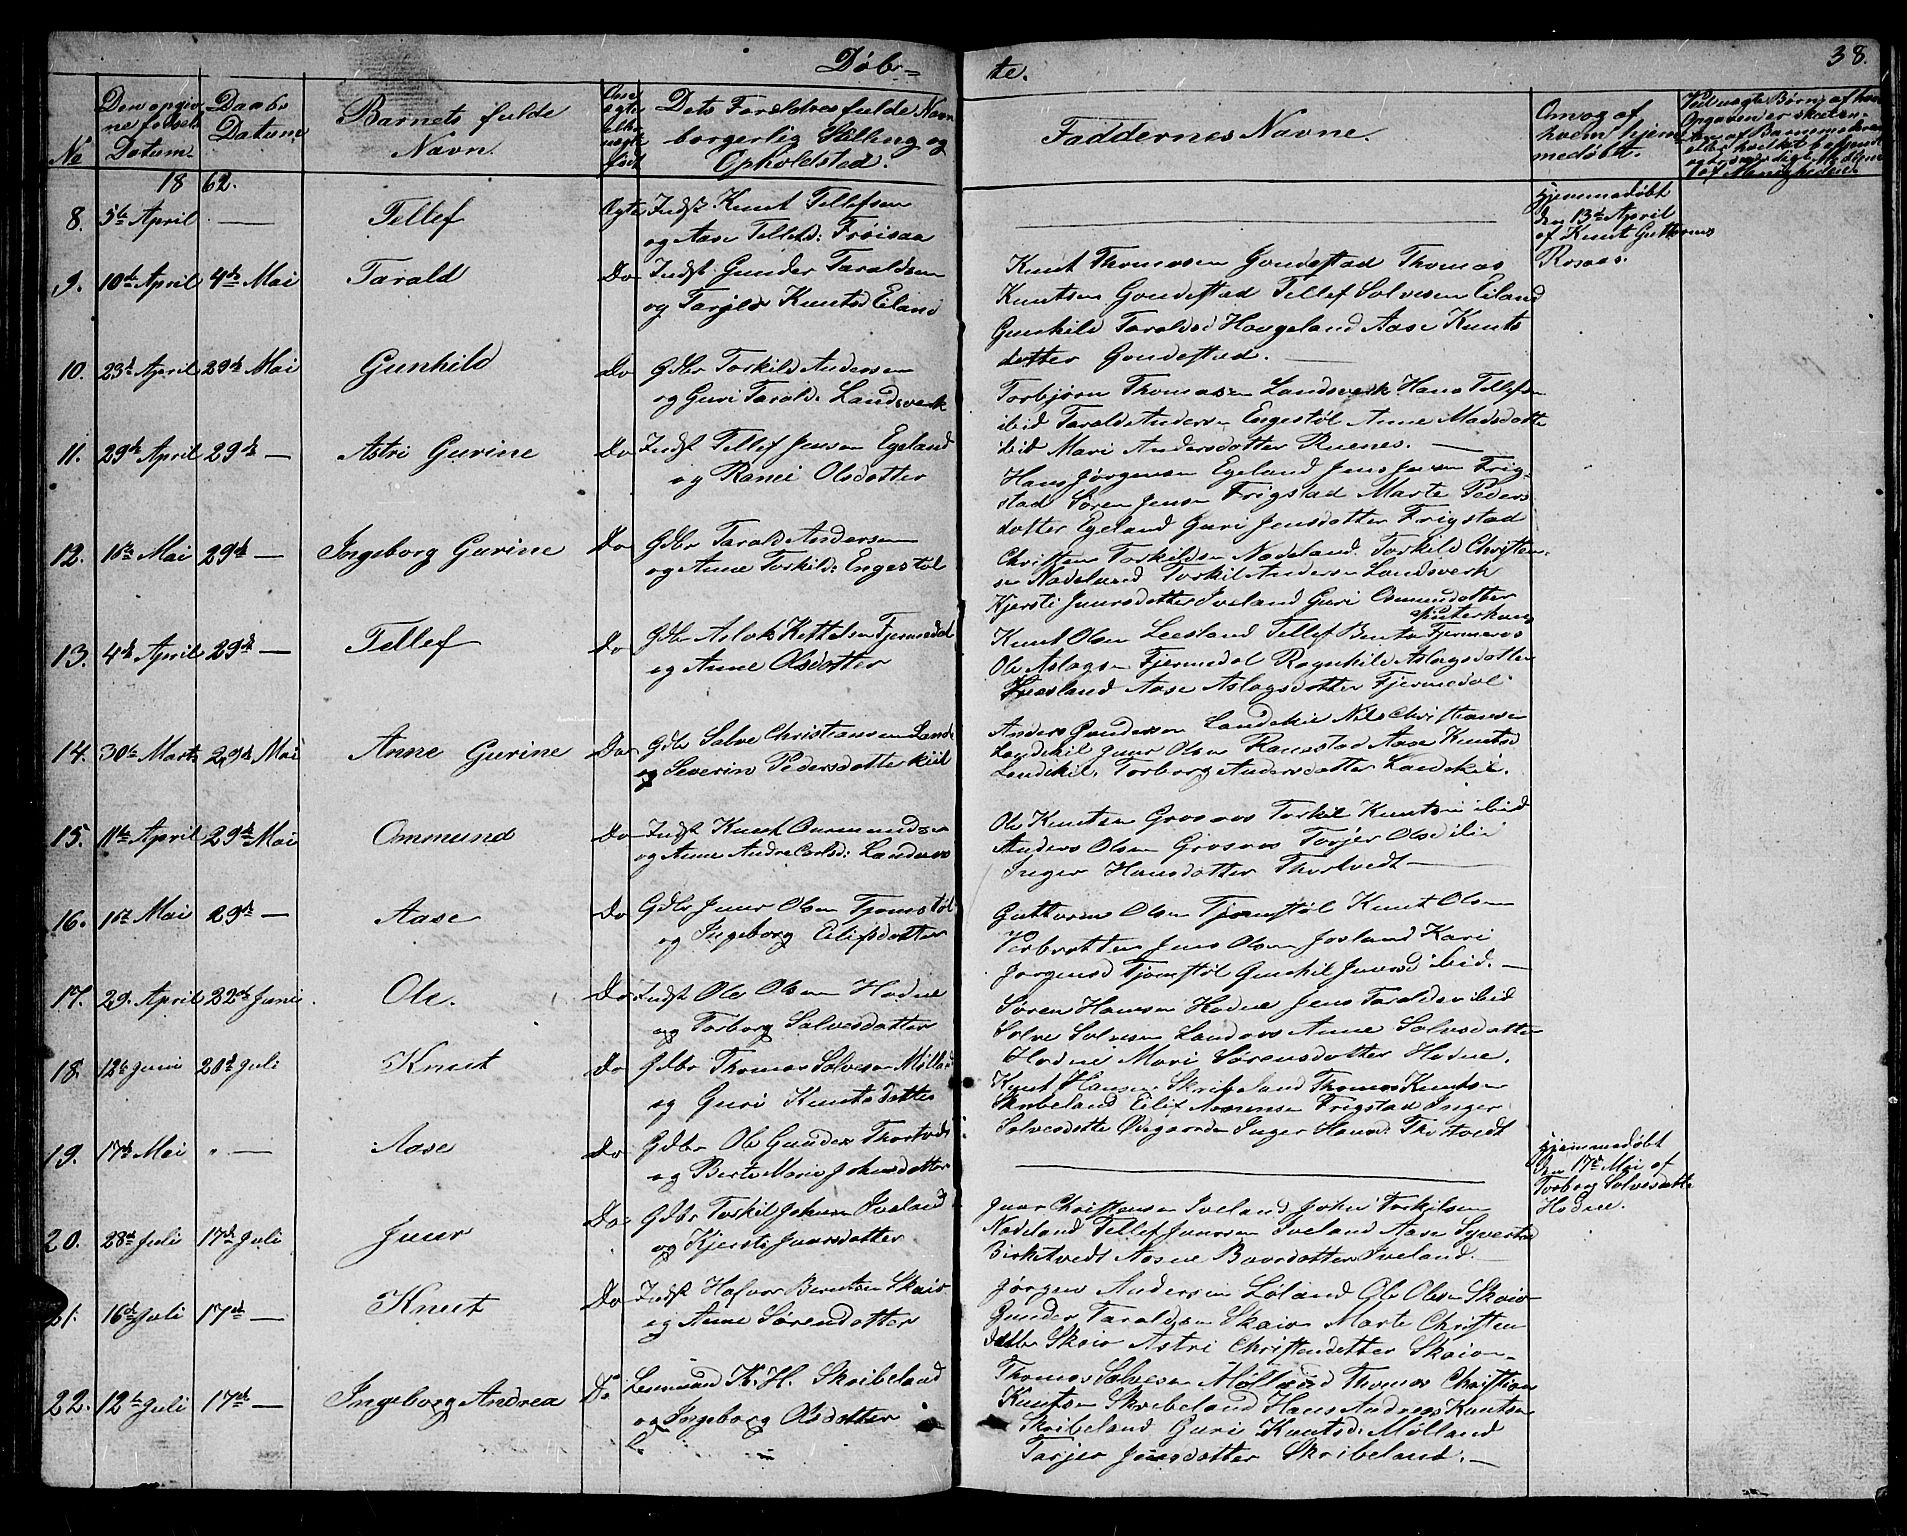 Døb-
te.
38.
No
Den opgiv
ne fødsels
Datum.
Daabs
Datum
Barnets fulde
Navn.
Om
ægte
eller
uægte
født
Dets Forældres fulde Navn
borgerlig Stilling og
Opholdstad.
Faddernes Navne.
Om og af
hvem hjem
medøbt.
1862.
8. 5te April — Tellef Ægte Indst Knut Tellefsen
og Aase Tellefsd: Frøisaa
hjemmedøbt
den 13de April
af Knut Guttorms
Rosaas.
9. 10de April 4de Mai Tarald Do Indst Gunder Taraldsen
og Torjeld Knutsd Eiland
Knut Thomassen Gondestad Thomas
Knutsen Gondestad Tellef Salvesen Eiland
Gunhild Taraldsd Haugeland Aase Knuts
datter Gondestad.
10. 23de April 29de Mai Gunhild Do Gdbr Torkild Andersen
og Guri Tarald: Landsverk
Torbjørn Thomasen Landsverk Hans Tellefsen
ibid Tarald Andersen Engestøl Anne Madsdatter
ibid Mari Andersdatter Ruenes. —
11. 29de April 29de — Astri Gurine Do Indst Tellef Jensen Egeland
og Ranei Olsdatter
Hans Jørgensen Egeland Jens Jensen Frig-
stad Søren Jensen Frigstad Marte Peders
datter Egeland Guri Jensdatter Frigstad
12. 16de Mai 29de — Ingeborg Gurine Do Gdbr Tarald Andersen
og Anne Torkild: Engestøl
Christen Torkildsen Nadeland Torkild Christen-
sen Nadeland Torkil Andersen Landsverk
Kjersti Juursdatter Iveland Guri Osmundatter
13. 4de April 29de — Tellef Do Gdbr Aslak Kittelsen Fjermedal
og Anne Olsdatter
Knut Olsen Leesland Tellef Bentsen Fjermeros
Ole Aslagsen Fjermedal Ragnhild Aslagsdatter
Leesland Aase Aslagsdatter Fjermedal
14. 30te Marts 29de Mai Anne Gurine Do Gdbr Salve Christiansen Land
og Severin Pedersdatter kiil
Anders Gundersen Landskil Nils Christiansen
Landskil Juur Olsen Ranestad Aase Knutsd
Landskil, Torborg Andersdatter Landskil.
15. 11te April 29de Mai Ommund Do Indst Knut Ommundsen
og Anne Andrea Carlsd: Landaas
Ole Knutsen Grosaas Torkil Knutsen ibid
Anders Olsen Grosaas Torjer Olsd ibid
Inger Hansdatter Thortvedt —
16. 16te Mai 29de — Aase Do Gdbr Juur Olsen Tjomstøl
og Ingeborg Eilifsdatter
Guttorm Olsen Tjomstøl Knut Olsen
Verbratten Jens Olsen Josland Kari
Jørgensd Tjomstøl Gunhil Juursd ibid. —
17. 29. April 22de Juni Ole. Do Indst Ole Olsen Hodne
og Torborg Salvesdatter
Søren Hansen Hodne Jens Taraldsen ibid
Salve Salvesen Landaas Anne Salvesdatter
Hodne Mari Sørensdatter Hodne.
18. 12te Juni 20de Juli Knut Do Gdbr Thomas Salvesen Mølland
og Guri Knutsdatter
Knut Hansen Skribeland Thomas Knutsen
Skribeland Eilif Aanensen Frigstad Inger
Salvesdatter Ovegaarden Inger Hansd: Thortvedt
19. 17de Mai " — Aase Do Gdbr Ole Gundersen Thortvedt
og Berte Marie Johnsdatter
hjemmedøbt
den 17de Mai af
Torborg Salvesdatter
Hodne.
20. 28de Juli 17de Juli Juur Do Gdbr Torkil Johnsen Iveland
og Kjersti Juursdatter
Juur Christensen Iveland John Torkilsen
Nadeland Tellef Juursen Iveland Aase Syvertsd
Birketvedt Aasne Baardatter Iveland.
21. 16de Juli 17de — Knut Do Indst Hafvor Berntsen Skaiv
og Anne Sørendatter
Jørgen Andersen Løland Ole Olsen Skaiv
Gunder Taraldsen Skaiv Marte Christen
datter Skaiv Astri Christendatter Skaiv —
22. 12te Juli 17de — Ingeborg Andrea Do Lensmand K. H. Skribeland
og Ingeborg Olsdatter
Thomas Salvesen Mølland Thomas Christian
Knutsen Skribeland Hans Andreas Knutsen
Skribeland Guri Knutsd: Mølland
Torjer Jensdatter Skribeland. —